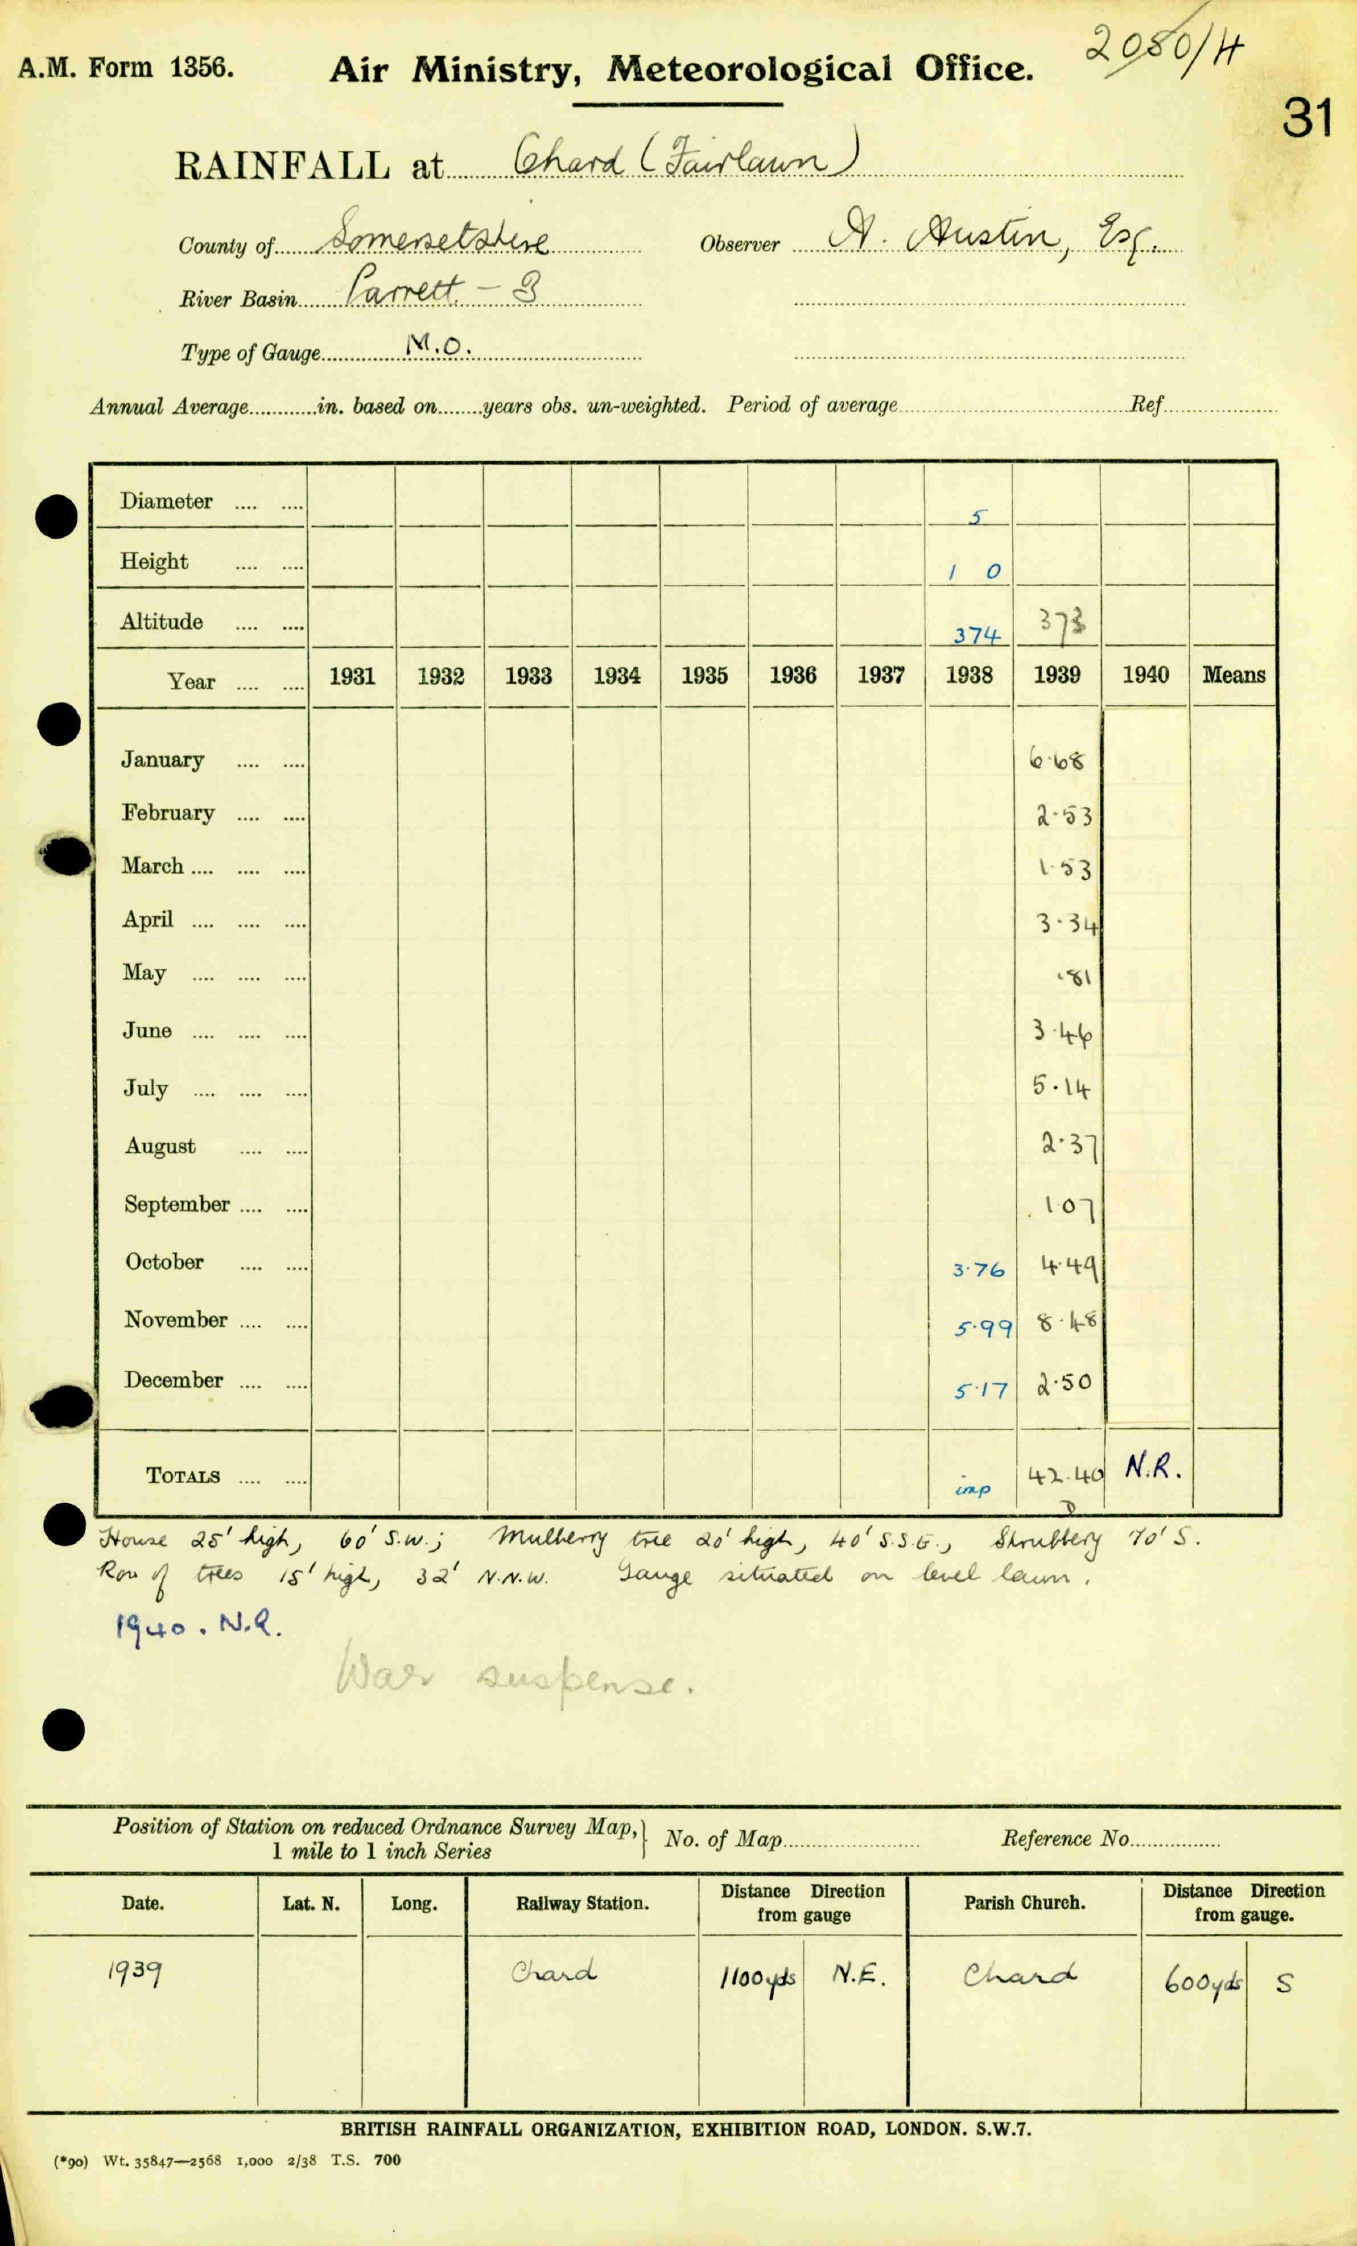 2080/H
A.M. Form 1356. Air Ministry, Meteorological Office.
31
RAINFALL at Chard (Fairlawn)
County of Somersetshire Observer A. Austin, Esq.
River Basin Parrett - 3
Type of Gauge M.O.
Annual Average in. based on years obs. un-weighted. Period of average Ref.
Diameter .... .... 5
Height .... .... 1 0
Altitude .... .... 374 373
Year .... .... 1931 1932 1933 1934 1935 1936 1937 1938 1939 1940 Means
January .... .... 6.68
February .... .... 2.53
March .... .... .... 1.53
April .... .... .... 3.34
May .... .... .... .81
June .... .... .... 3.46
July .... .... .... 5.14
August .... .... 2.37
September .... .... 1.07
October .... .... 3.76 4.49
November .... .... 5.99 8.48
December .... .... 5.17 2.50
TOTALS .... .... imp 42.40 N.R.
D
House 25' high, 60' S.W.; Mulberry tree 20' high, 40' S.S.E., Shrubbery 70' S.
Row of trees 15' high, 32' N.N.W. Gauge situated on level lawn.
1940. N.R.
War suspense.
Position of Station on reduced Ordnance Survey Map, 1 mile to 1 inch Series } No. of Map Reference No.
Date. Lat. N. Long. Railway Station. Distance Direction from gauge Parish Church. Distance Direction from gauge.
1939 Chard 1100 yds N.E. Chard 600 yds S
BRITISH RAINFALL ORGANIZATION, EXHIBITION ROAD, LONDON. S.W.7.
(*90) Wt. 35847—2568 1,000 2/38 T.S. 700